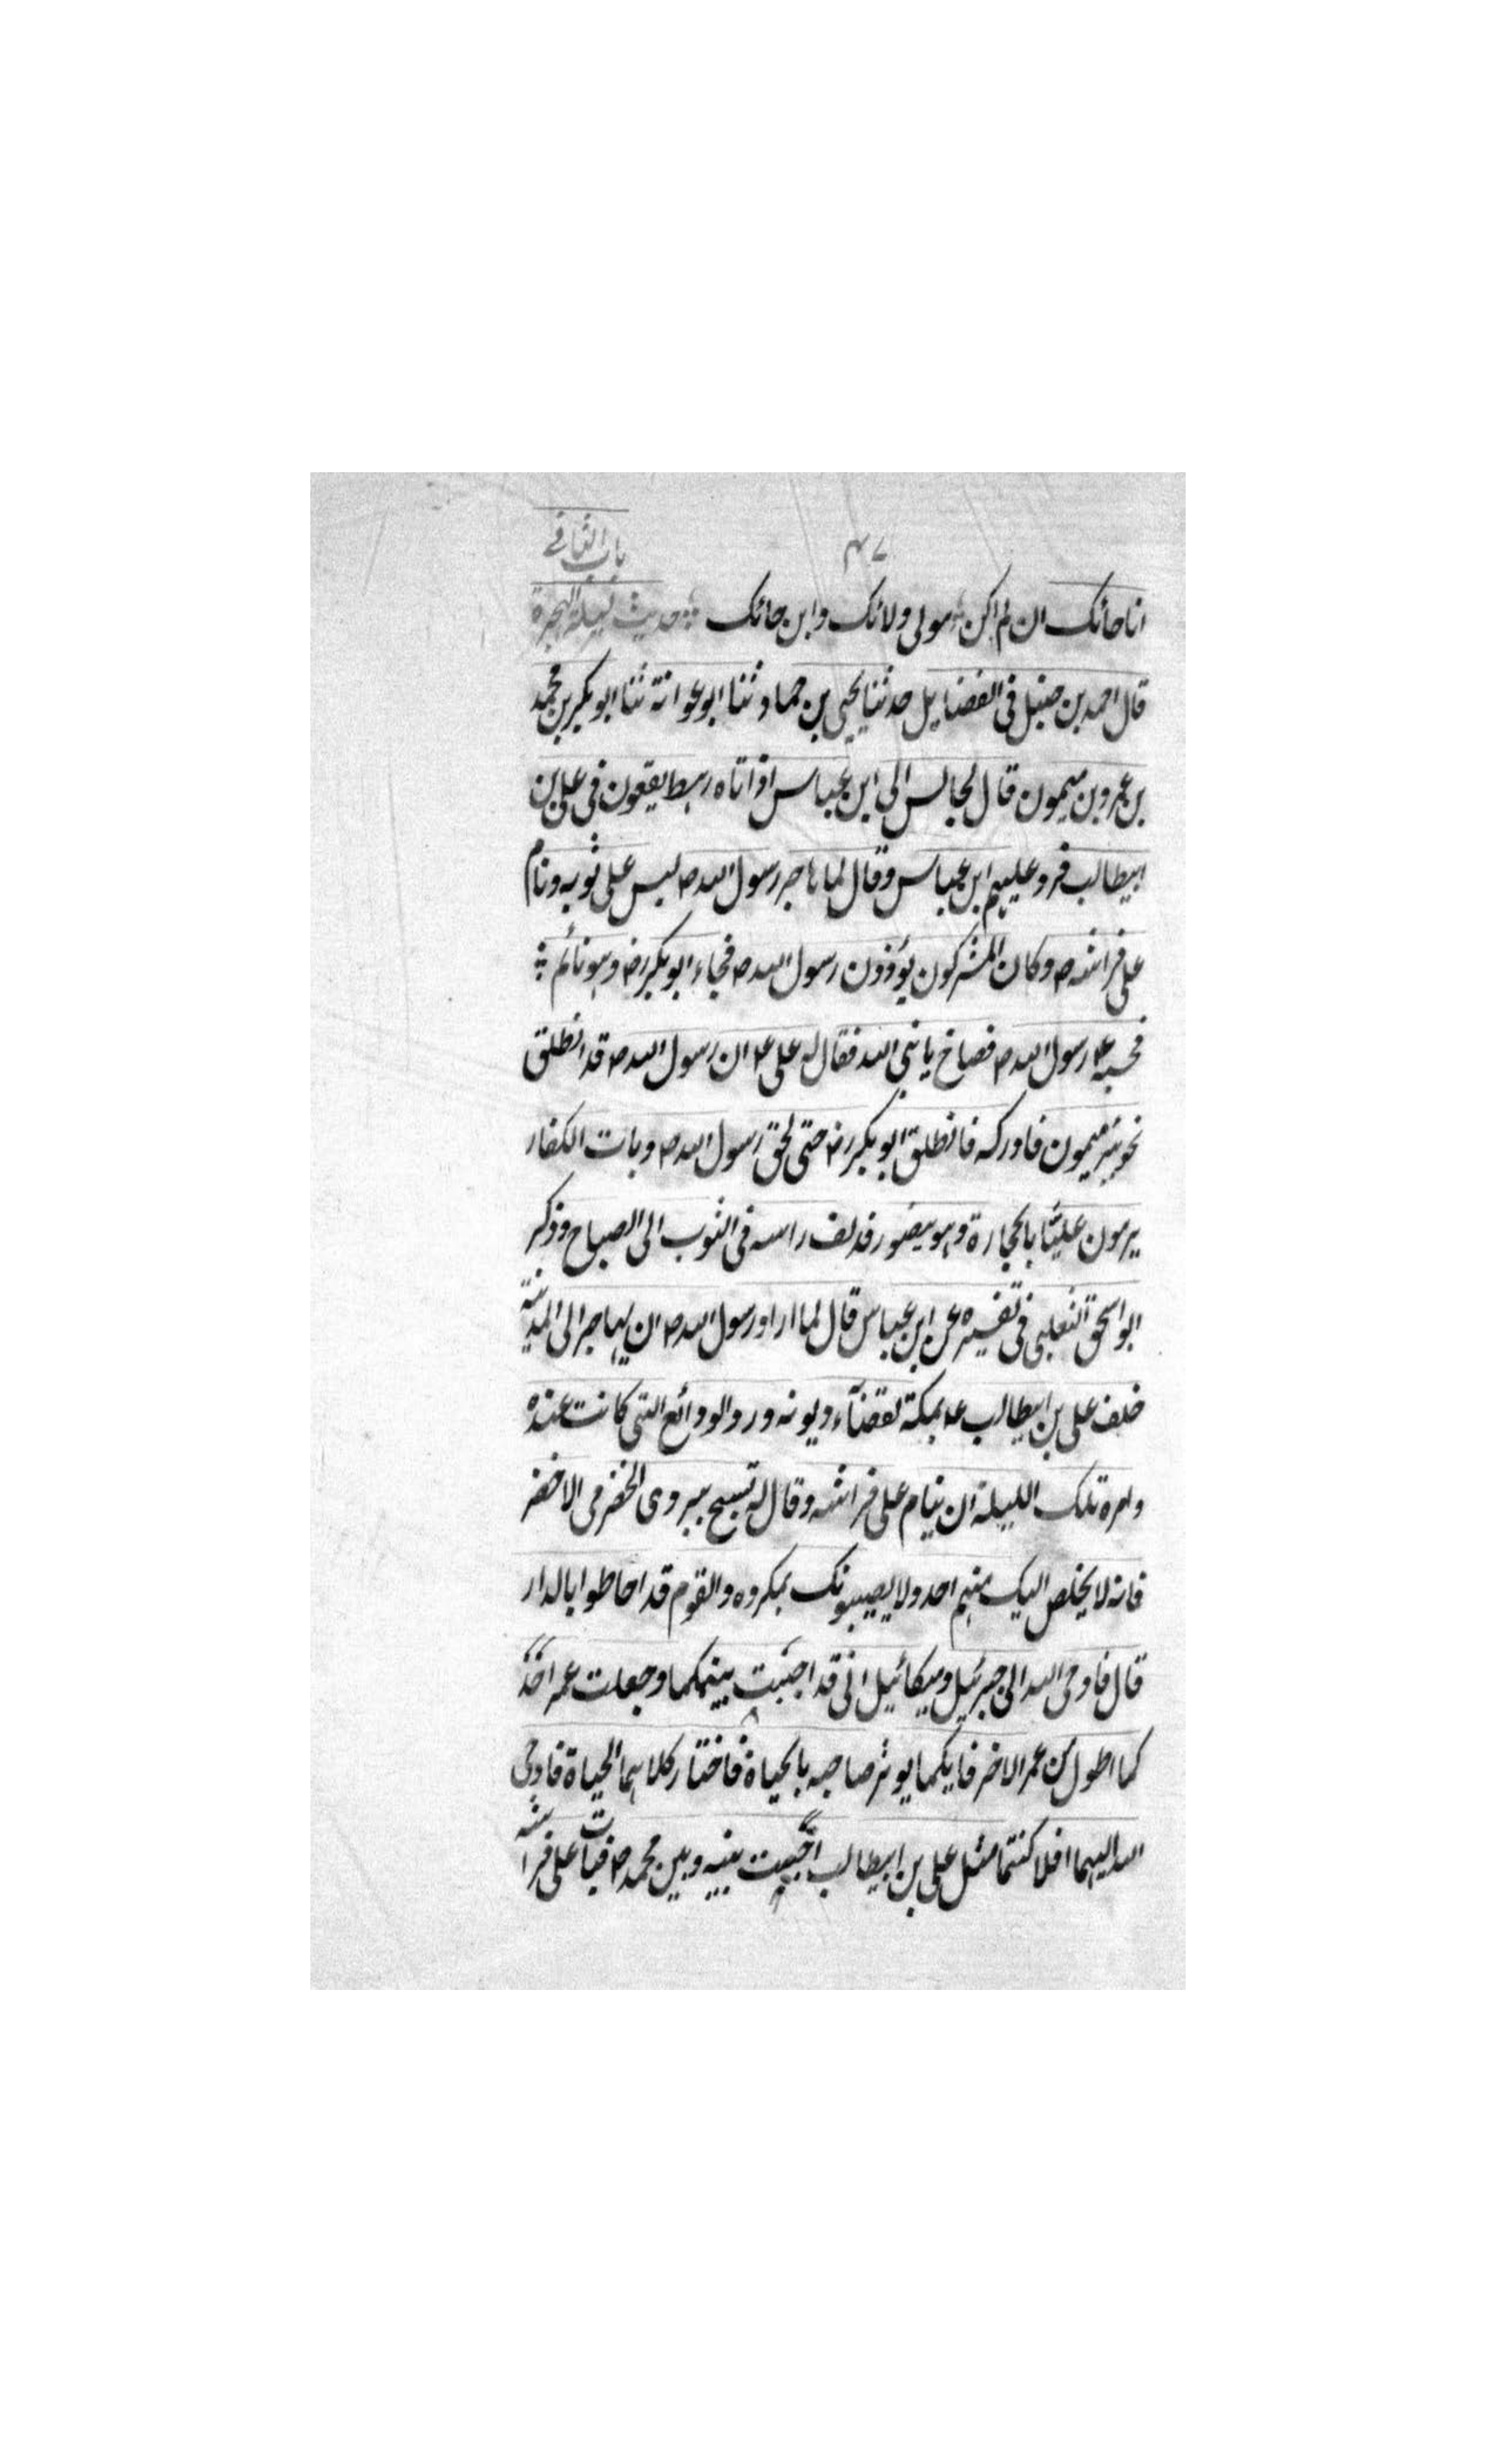 ۴۷
باب الثانی
انا حائک ان لم اکن مولی ولائک وابن حائک ∴ حدیث لیلة الهجرة
قال احمد بن حنبل فی الفضایل حدثنا یحیی بن حماد ثنا ابو عوانة ثنا ابو بکر بن محمد
بن عمرو بن میمون قال لجالس الی ابن عباس اذ اتاه رهط یقعون فی علی بن
ابیطالب فرد علیهم ابن عباس وقال لما هاجر رسول الله ص لبس علی ثوبه ونام
علی فراشه ص وکان المشرکون یؤذون رسول الله ص فجاء ابو بکر رض وهو نائم ∴
فحسبه رسول الله ص فصاح یا نبی الله فقال له علی ع ان رسول الله ص قد انطلق
نحو بئر میمون فادرکه فانطلق ابو بکر رض حتی لحق رسول الله ص وبات الکفار
یرمون علیّا بالحجارة وهو یضور قد لف راسه فی الثوب الی الصباح وذکر
ابو اسحق الثعلبی فی تفسیره عن ابن عباس قال لما اراد رسول الله ص ان یهاجر الی المدینة
خلف علی بن ابیطالب ع بمکة لقضآء دیونه ورد الودائع التی کانت عنده
وامره تلک اللیلة ان ینام علی فراشه وقال له تسبح ببردی الخضرمی الاخضر
فانه لا یخلص الیک منهم احد ولا یصیبونک بمکروه والقوم قد احاطوا بالدار
قال فاوحی الله الی جبرئیل ومیکائیل انی قد اجیت بینکما وجعلت عمر احد
کما اطول من عمر الاخر فایکما یوثر صاحبه بالحیاة فاختار کلاهما الحیاة فاوحی
الله الیهما افلا کنتما مثل علی بن ابیطالب اجیت بینه وبین محمد ص فبات علی فراشه